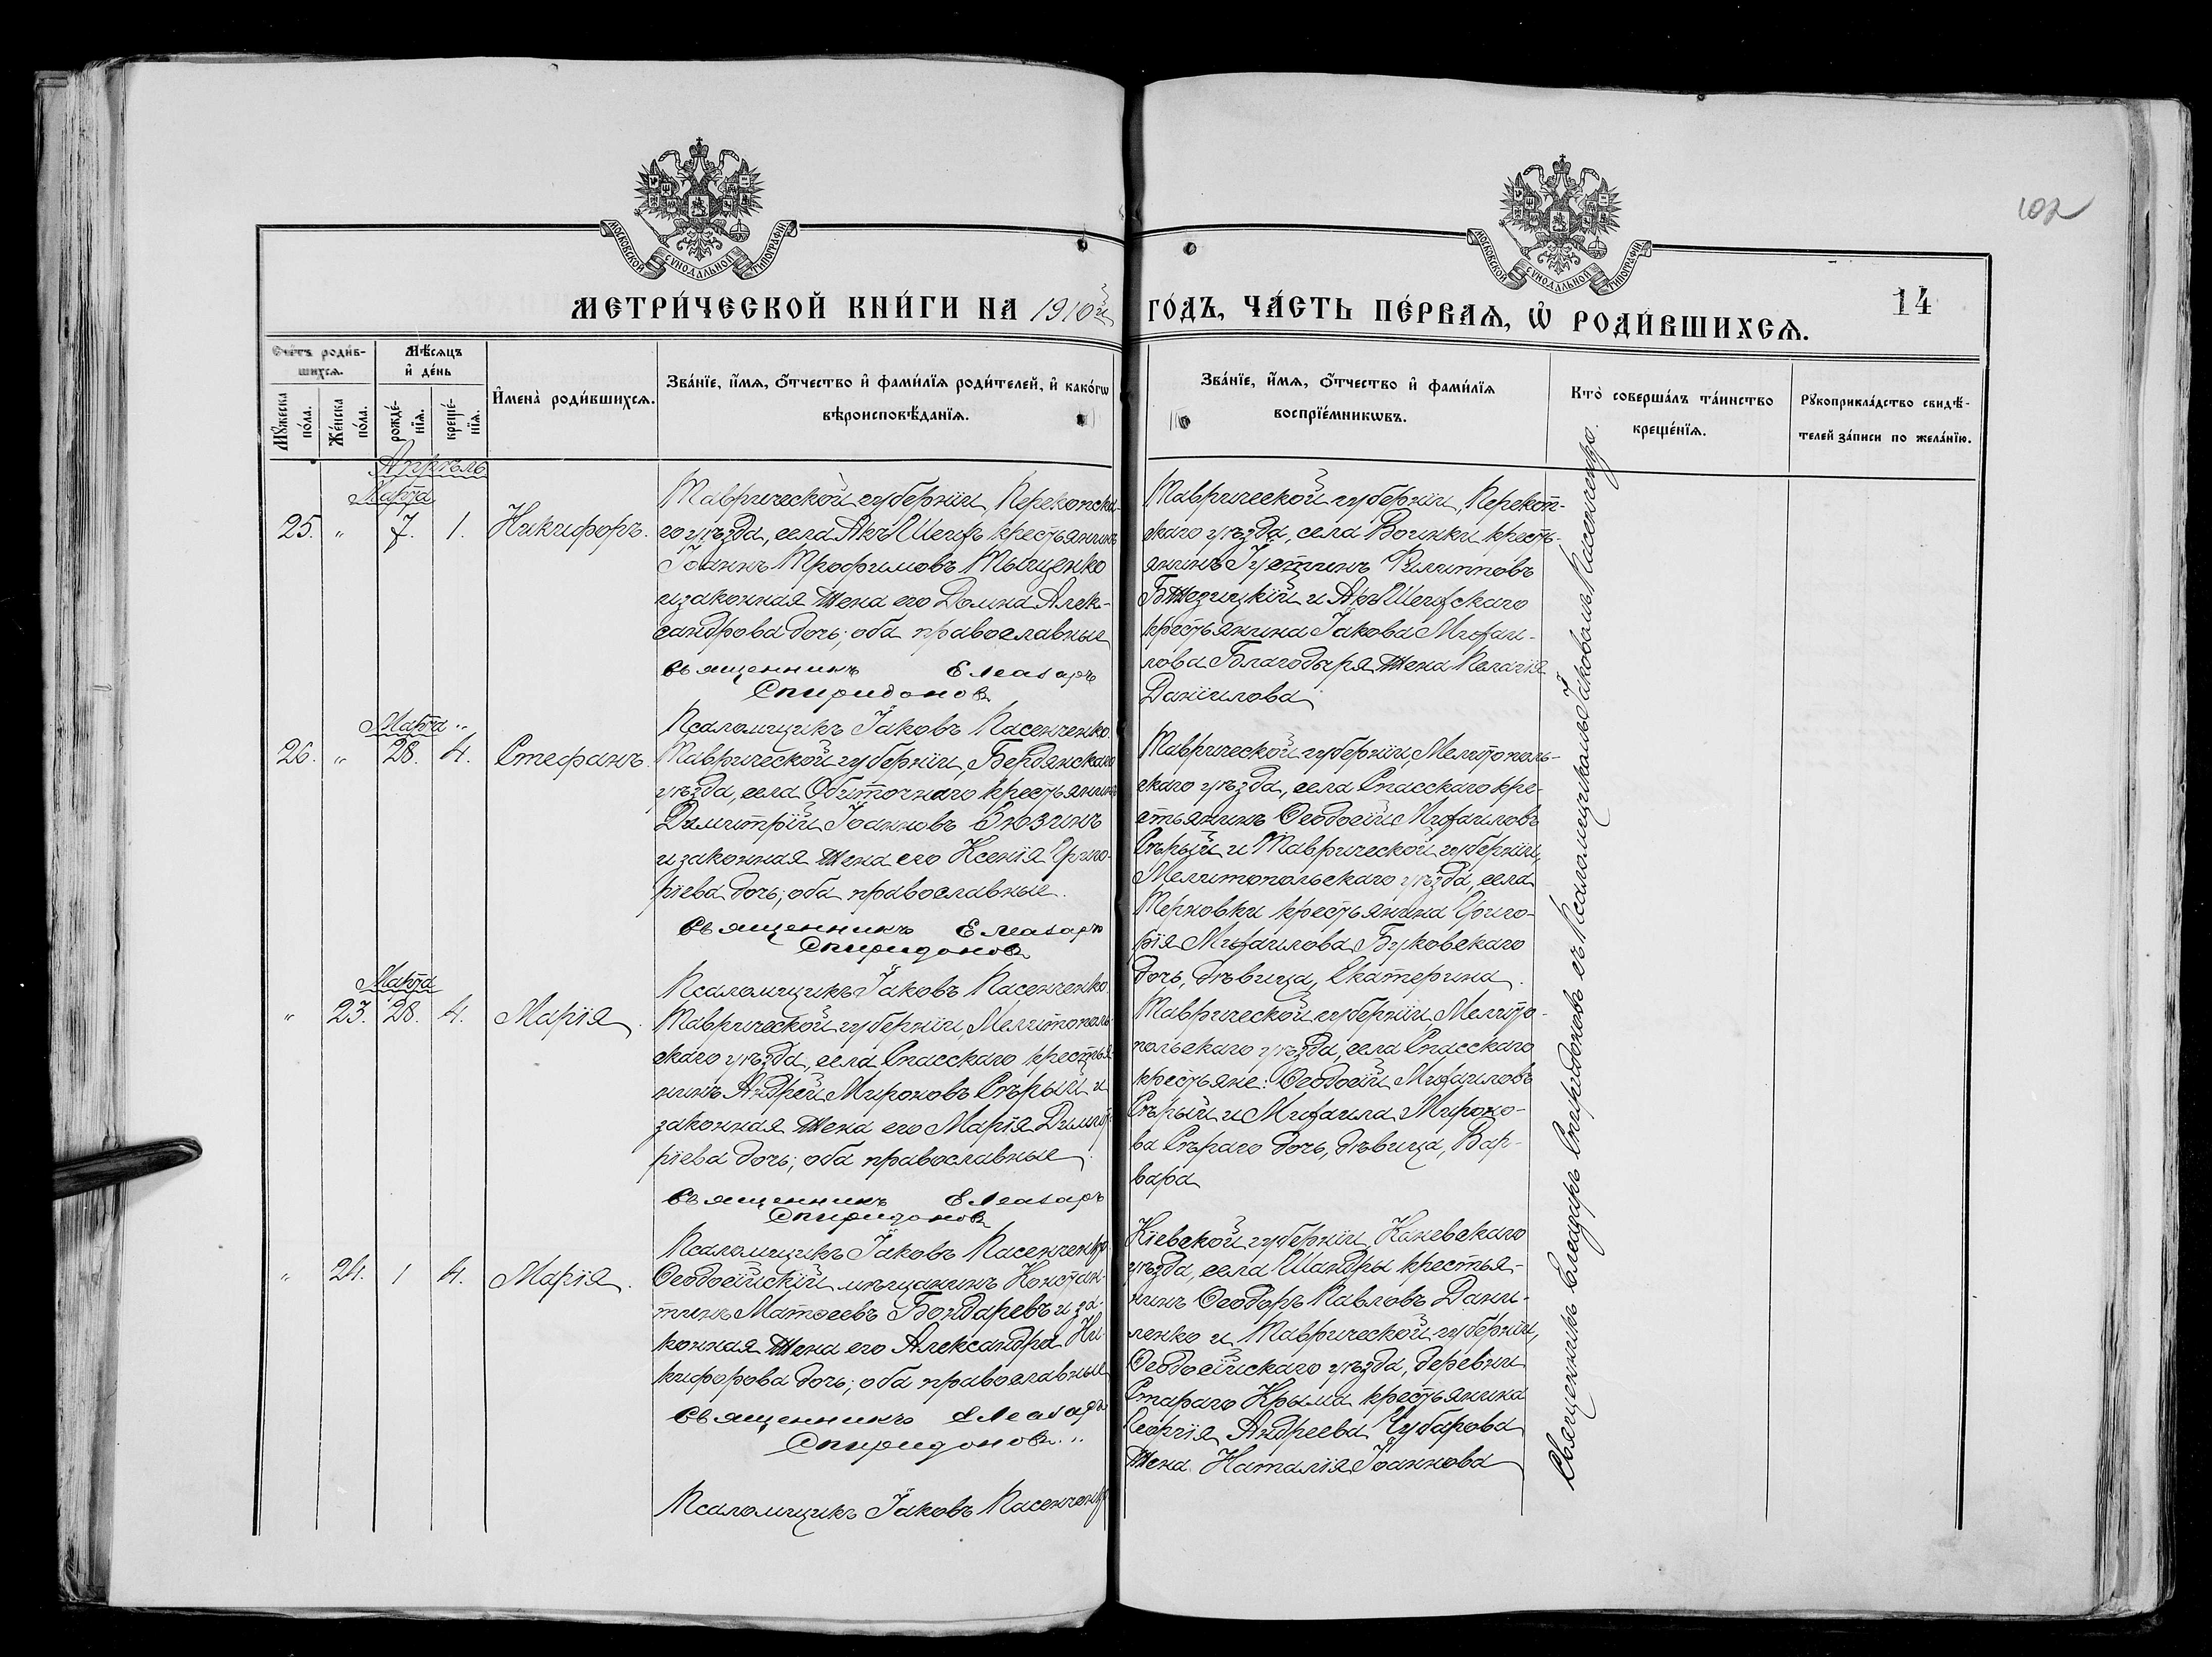 102
МОСКОВСКОЙ СУНОДАЛЬНОЙ ТИПОГРАФІИ
МОСКОВСКОЙ СУНОДАЛЬНОЙ ТИПОГРАФІИ
МЕТРИ́ЧЕСКОЙ КНИ́ГИ НА 1910й
ГО́ДЪ, ЧА́СТЬ ПЕ́РВАѦ, Ѡ҆ РОДИ́ВШИХСѦ.
14
Сче́тъ роди́в-
шихсѧ.
Мꙋ́жеска по́ла.
Же́нска по́ла.
Мѣ́сѧцъ
и҆ де́нь
рожде́-
нїѧ.
креще́-
нїѧ.
И҆мена̀ роди́вшихсѧ.
Зва́нїе, и҆́мѧ, ѻ҆́тчество и҆ фами́лїѧ роди́телей, и҆ како́гѡ
вѣроисповѣ́данїѧ.
Зва́нїе, и҆́мѧ, ѻ҆́тчество и҆ фами́лїѧ
воспрїе́мникѡвъ.
Кто̀ соверша́лъ та́инство
креще́нїѧ.
Рꙋкоприкла́дство свидѣ́-
телей за́писи по жела́нїю.
Апрѣль
Марта
25. " 7. 1. Никифоръ.
Таврической губерніи, Перекопска-
го уѣзда, села Акъ Шеихъ крестьянинъ
Іоаннъ Трофимовъ Тыщенко
и законная жена его Домна Алек-
сандрова дочь; оба православные
Священникъ Елеазаръ
Спиридоновъ
Псаломщикъ Іаковъ Пасенченко.
Таврической губерніи, Перекоп-
скаго уѣзда, села Воинки кресть-
янинъ Іустинъ Филипповъ
Бжезицкій и Акъ Шеихскаго
крестьянина Іакова Михаи-
лова Благодыря жена Пелагія
Даніилова
Марта
26. " 28. 4. Стефанъ.
Таврической губерніи, Бердянскаго
уѣзда, села Обиточнаго крестьянинъ
Димитрій Іоанновъ Бюзинъ
и законная жена его Ксенія Григо-
ріева дочь; оба православные.
Священникъ Елеазаръ
Спиридоновъ
Псаломщикъ Іаковъ Пасенченко.
Таврической губерніи, Мелитополь-
скаго уѣзда, села Спасскаго кре-
стьянинъ Ѳеодосій Михаиловъ
Сѣрый и Таврической губерніи,
Мелитопольскаго уѣзда, села
Терновки крестьянина Григо-
рія Михаилова Буковскаго
дочь, дѣвица, Екатерина.
Марта
" 23. 28. 4. Марія.
Таврической губерніи, Мелитополь-
скаго уѣзда, села Спасскаго крестья-
нинъ Андрей Мироновъ Сѣрый и
законная жена его Марія Димит-
ріева дочь; оба православные.
Священникъ Елеазаръ
Спиридоновъ
Псаломщикъ Іаковъ Пасенченко.
Таврической губерніи, Мелито-
польскаго уѣзда, села Спасскаго
крестьяне: Ѳеодосій Михаиловъ
Сѣрый и Михаила Мироно-
ва Сѣраго дочь, дѣвица, Вар-
вара
" 24. 1 4. Марія.
Ѳеодосійскій мѣщанинъ Констан-
тинъ Матѳеевъ Бондаревъ и за-
конная жена его Александра Ни-
кифорова дочь; оба православные
Священникъ Елеазаръ
Спиридоновъ
Псаломщикъ Іаковъ Пасенченко
Кіевской губерніи, Каневскаго
уѣзда, села Шандры крестья-
нинъ Ѳеодоръ Павловъ Дани-
ленко и Таврической губерніи,
Ѳеодосійскаго уѣзда, деревни
Стараго Крыма крестьянина
Георгія Андреева Чубарова
жена Наталія Іоаннова
Священникъ Елеазаръ Спиридоновъ съ Псаломщикомъ Іаковомъ Пасенченко.